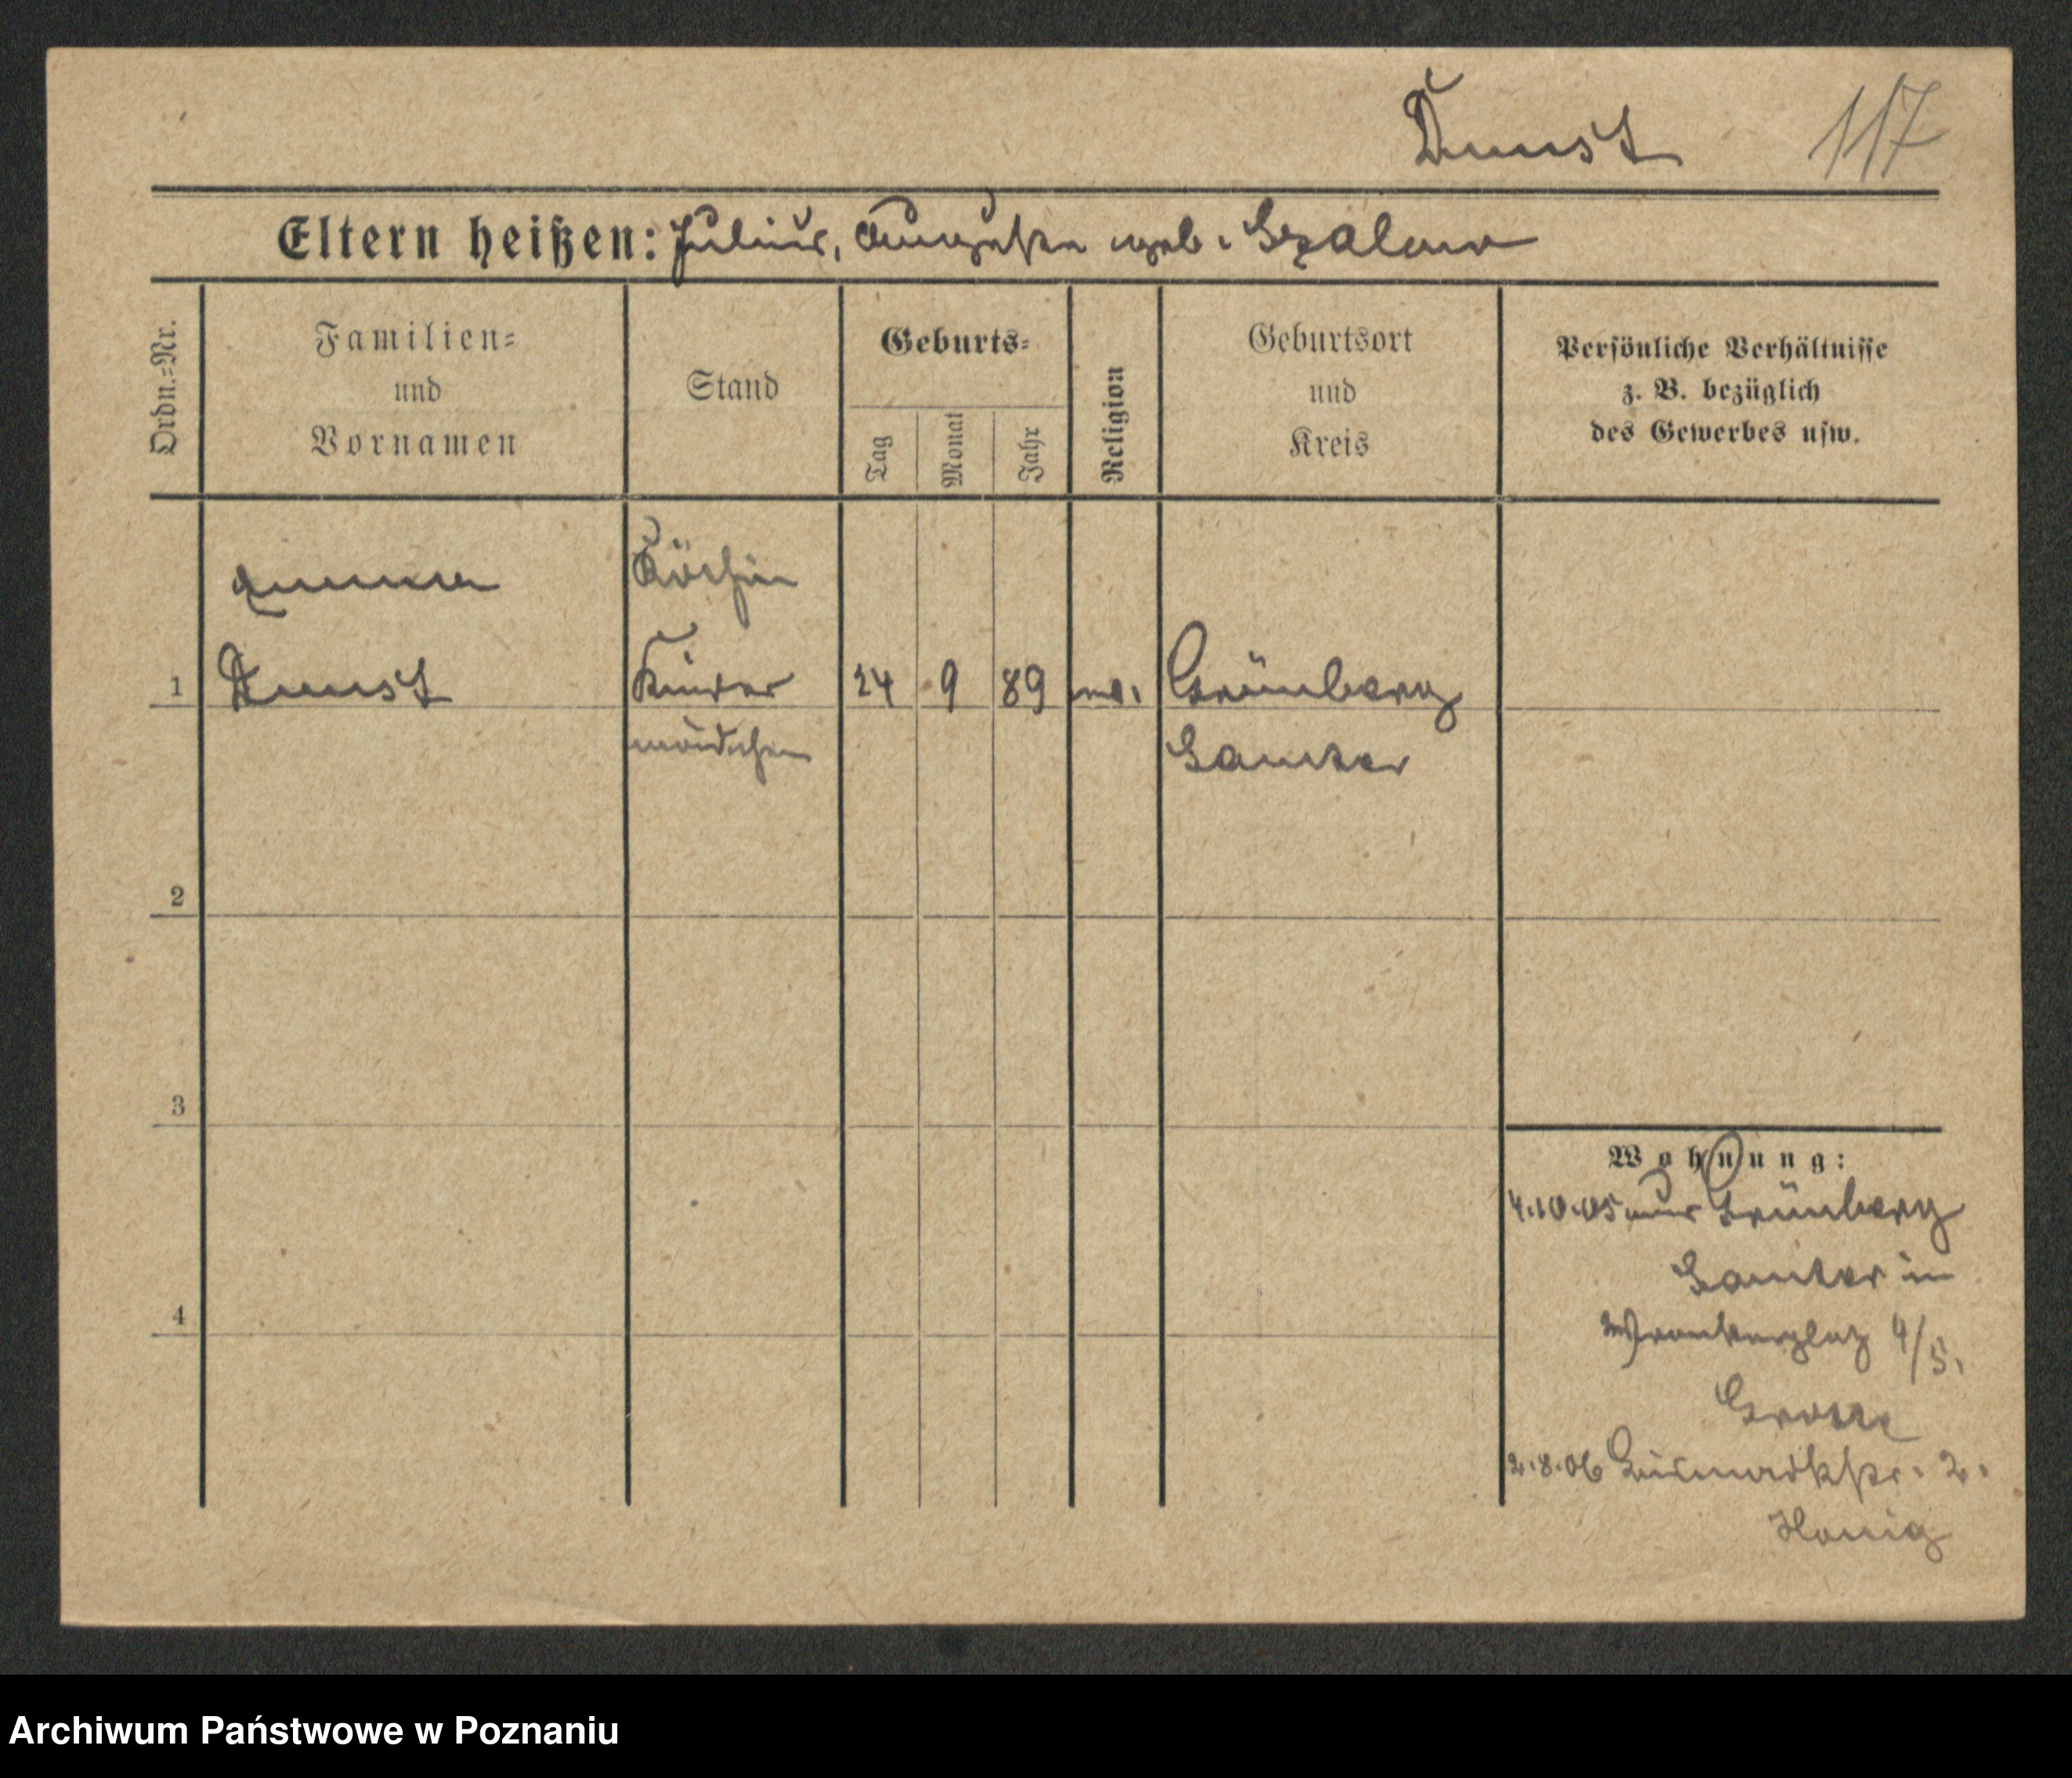 Dunst 117
Eltern heißen: Julius, Auguste geb. Szalow
Ordn.=Nr.
Familien=
und
Vornamen
Stand
Geburts=
Tag
Monat
Jahr
Religion
Geburtsort
und
Kreis
Persönliche Verhältnisse
z. B. bezüglich
des Gewerbes usw.
Emma Köchin
1 Dunst Kinder 24 9 89 ev. Grünberg
mädchen Samter
2
3
4
Wohnung:
4.10.05 aus Grünberg
Samter in
Wronkerplatz 4/5.
2.8.06 Bismarckstr. 2.
Honig
Archiwum Państwowe w Poznaniu